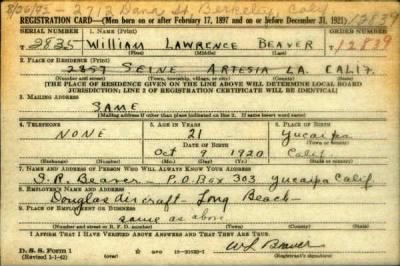 8/26/42 - 2712 Dana St Berkeley Calif
REGISTRATION CARD—(Men born on or after February 17, 1897 and on or before December 31, 1921) 12839
SERIAL NUMBER 1. NAME (Print) ORDER NUMBER
T 2835 William Lawrence Beaver 12839
2. PLACE OF RESIDENCE (Print)
2357 Seine Artesia LA. Calif.
(Number and street) (Town, township, village, or city) (County) (State)
[THE PLACE OF RESIDENCE GIVEN ON THE LINE ABOVE WILL DETERMINE LOCAL BOARD
JURISDICTION; LINE 2 OF REGISTRATION CERTIFICATE WILL BE IDENTICAL]
3. MAILING ADDRESS
Same
[Mailing address if other than place indicated on line 2. If same insert word same]
4. TELEPHONE 5. AGE IN YEARS 6. PLACE OF BIRTH
None 21 Yucaipa
DATE OF BIRTH (Town or county)
Oct 9 1920 Calif
(Exchange) (Number) (Mo.) (Day) (Yr.) (State or country)
7. NAME AND ADDRESS OF PERSON WHO WILL ALWAYS KNOW YOUR ADDRESS
I.R. Beaver - P.O. Box 303 Yucaipa Calif
8. EMPLOYER'S NAME AND ADDRESS
Douglas Aircraft - Long Beach
9. PLACE OF EMPLOYMENT OR BUSINESS
same as above
(Number and street or R. F. D. number) (Town) (County) (State)
I AFFIRM THAT I HAVE VERIFIED ABOVE ANSWERS AND THAT THEY ARE TRUE.
D. S. S. Form 1
(Revised 1-1-42) (over)
WL Beaver
(Registrant's signature)